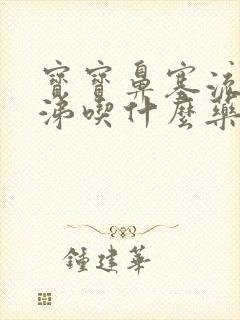 寶寶鼻塞流
涕喫什麼藥
鍾建華